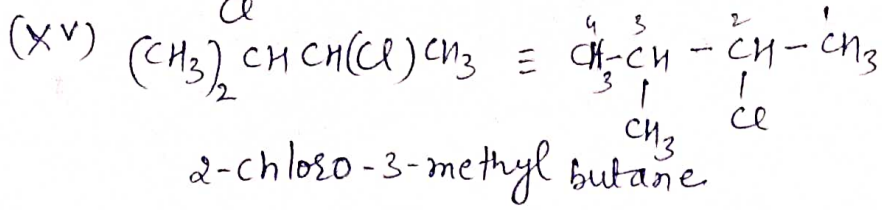 Cl
(XV) (CH3)2 CH CH(Cl) CH3 ≡ CH3-CH - CH - CH3
4 3 2 1
CH3 Cl
2-chloro-3-methyl butane